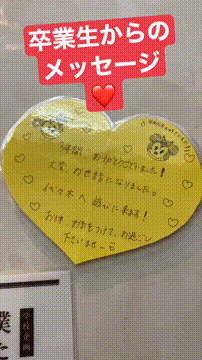 卒業生からの
メッセージ
3年間、ありがとうございました!
大変、お世話になりました。
代々木へ 遊びに来ます!
お体 お気をつけて、お過ごし
下さいませ
学校企画